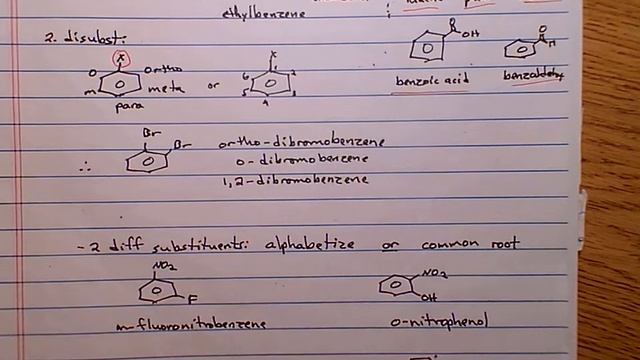 ethylbenzene
2. disubst:
X
O ortho
m meta
para
or
X
1
6 2
5 3
4
O
OH
benzoic acid
O
H
Br
Br
∴
ortho-dibromobenzene
o-dibromobenzene
1,2-dibromobenzene
- 2 diff substituents: alphabetize or common root
NO2
F
m-fluoronitrobenzene
NO2
OH
o-nitrophenol